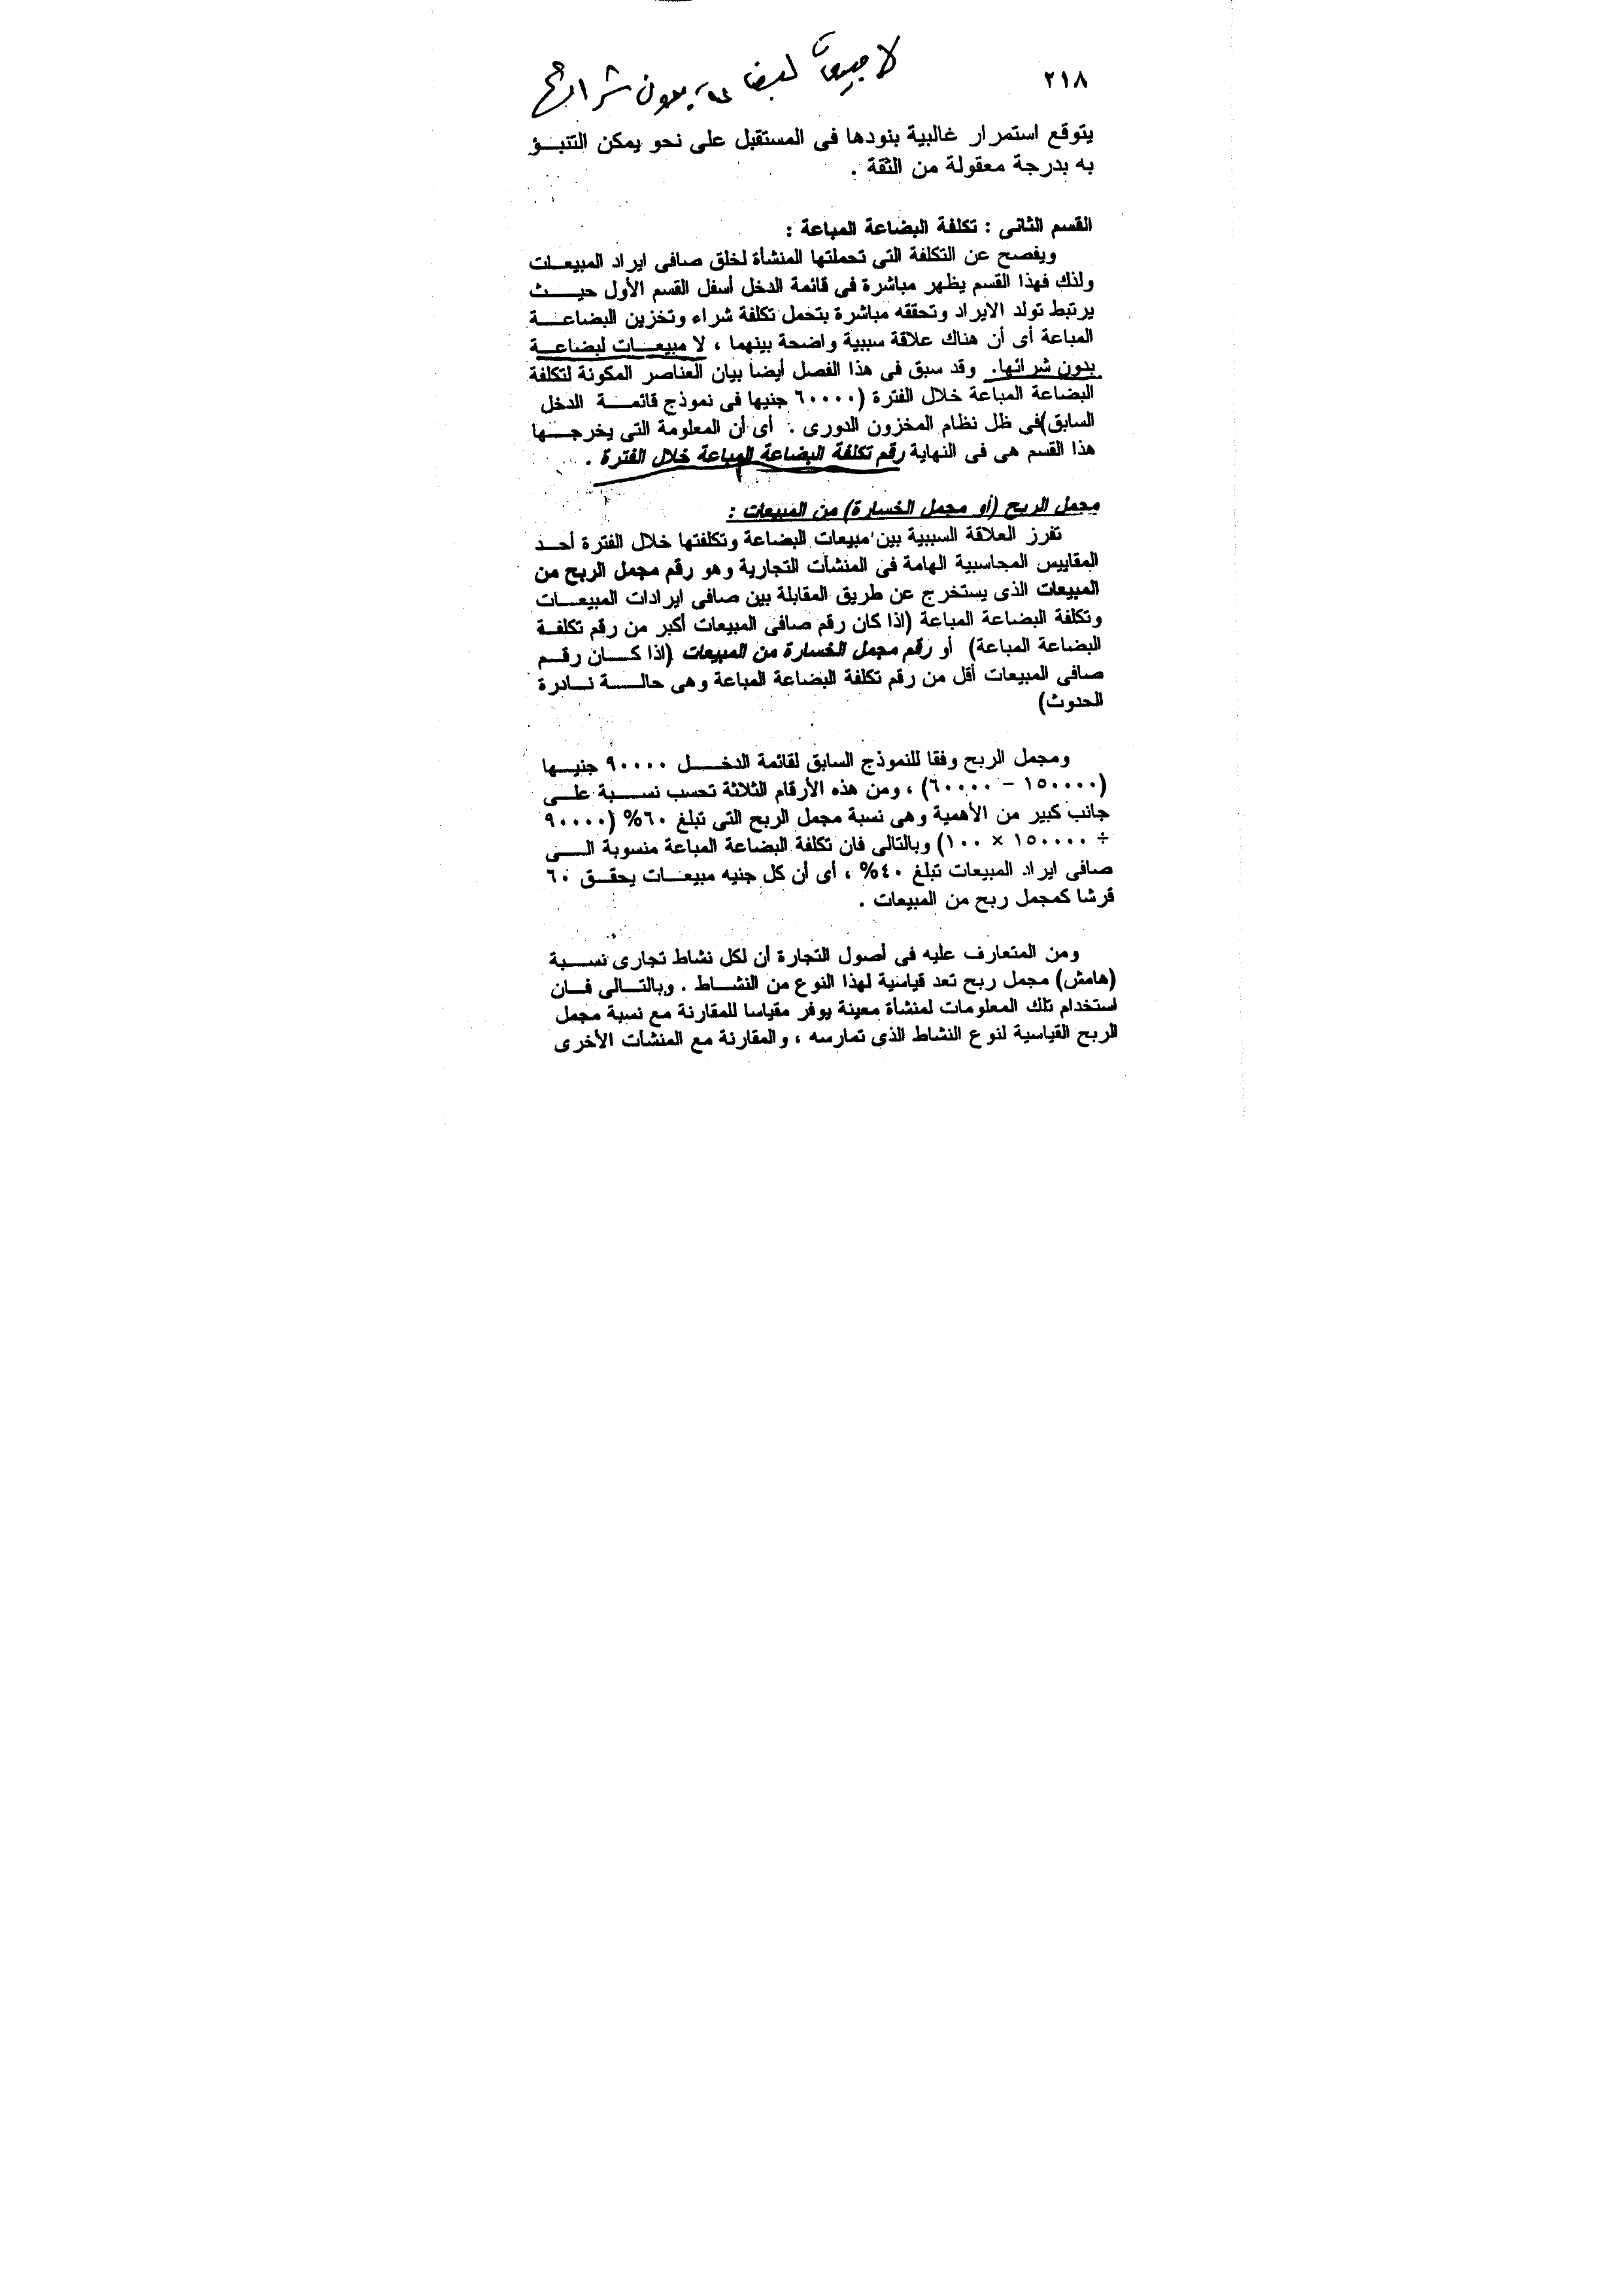 ٢١٨
لا مبيعات لبضاعة بدون شرائها
يتوقع استمرار غالبية بنودها فى المستقبل على نحو يمكن التنبؤ
به بدرجة معقولة من الثقة .
القسم الثانى : تكلفة البضاعة المباعة :
ويفصح عن التكلفة التى تحملتها المنشأة لخلق صافى ايراد المبيعات
ولذك فهذا القسم يظهر مباشرة فى قائمة الدخل أسفل القسم الأول حيث
يرتبط تولد الايراد وتحققه مباشرة بتحمل تكلفة شراء وتخزين البضاعة
المباعة أى أن هناك علاقة سببية واضحة بينهما ، لا مبيعات لبضاعة
بدون شرائها. وقد سبق فى هذا الفصل أيضا بيان العناصر المكونة لتكلفة
البضاعة المباعة خلال الفترة (٦٠٠٠٠ جنيها فى نموذج قائمة الدخل
السابق)فى ظل نظام المخزون الدورى . أى أن المعلومة التى يخرجها
هذا القسم هى فى النهاية رقم تكلفة البضاعة المباعة خلال الفترة .
مجمل الربح (أو مجمل الخسارة) من المبيعات :
تفرز العلاقة السببية بين مبيعات البضاعة وتكلفتها خلال الفترة أحد
المقاييس المحاسبية الهامة فى المنشآت التجارية وهو رقم مجمل الربح من
المبيعات الذى يستخرج عن طريق المقابلة بين صافى ايرادات المبيعات
وتكلفة البضاعة المباعة (اذا كان رقم صافى المبيعات أكبر من رقم تكلفة
البضاعة المباعة) أو رقم مجمل الخسارة من المبيعات (اذا كان رقم
صافى المبيعات أقل من رقم تكلفة البضاعة المباعة وهى حالة نادرة
الحدوث)
ومجمل الربح وفقا للنموذج السابق لقائمة الدخل ٩٠٠٠٠ جنيها
(١٥٠٠٠٠ – ٦٠٠٠٠) ، ومن هذه الأرقام الثلاثة تحسب نسبة على
جانب كبير من الأهمية وهى نسبة مجمل الربح التى تبلغ ٦٠% (٩٠٠٠٠
÷ ١٥٠٠٠٠ × ١٠٠) وبالتالى فان تكلفة البضاعة المباعة منسوبة الى
صافى ايراد المبيعات تبلغ ٤٠% ، أى أن كل جنيه مبيعات يحقق ٦٠
قرشا كمجمل ربح من المبيعات .
ومن المتعارف عليه فى أصول التجارة أن لكل نشاط تجارى نسبة
(هامش) مجمل ربح تعد قياسية لهذا النوع من النشاط . وبالتالى فان
استخدام تلك المعلومات لمنشأة معينة يوفر مقياسا للمقارنة مع نسبة مجمل
الربح القياسية لنوع النشاط الذى تمارسه ، والمقارنة مع المنشآت الأخرى